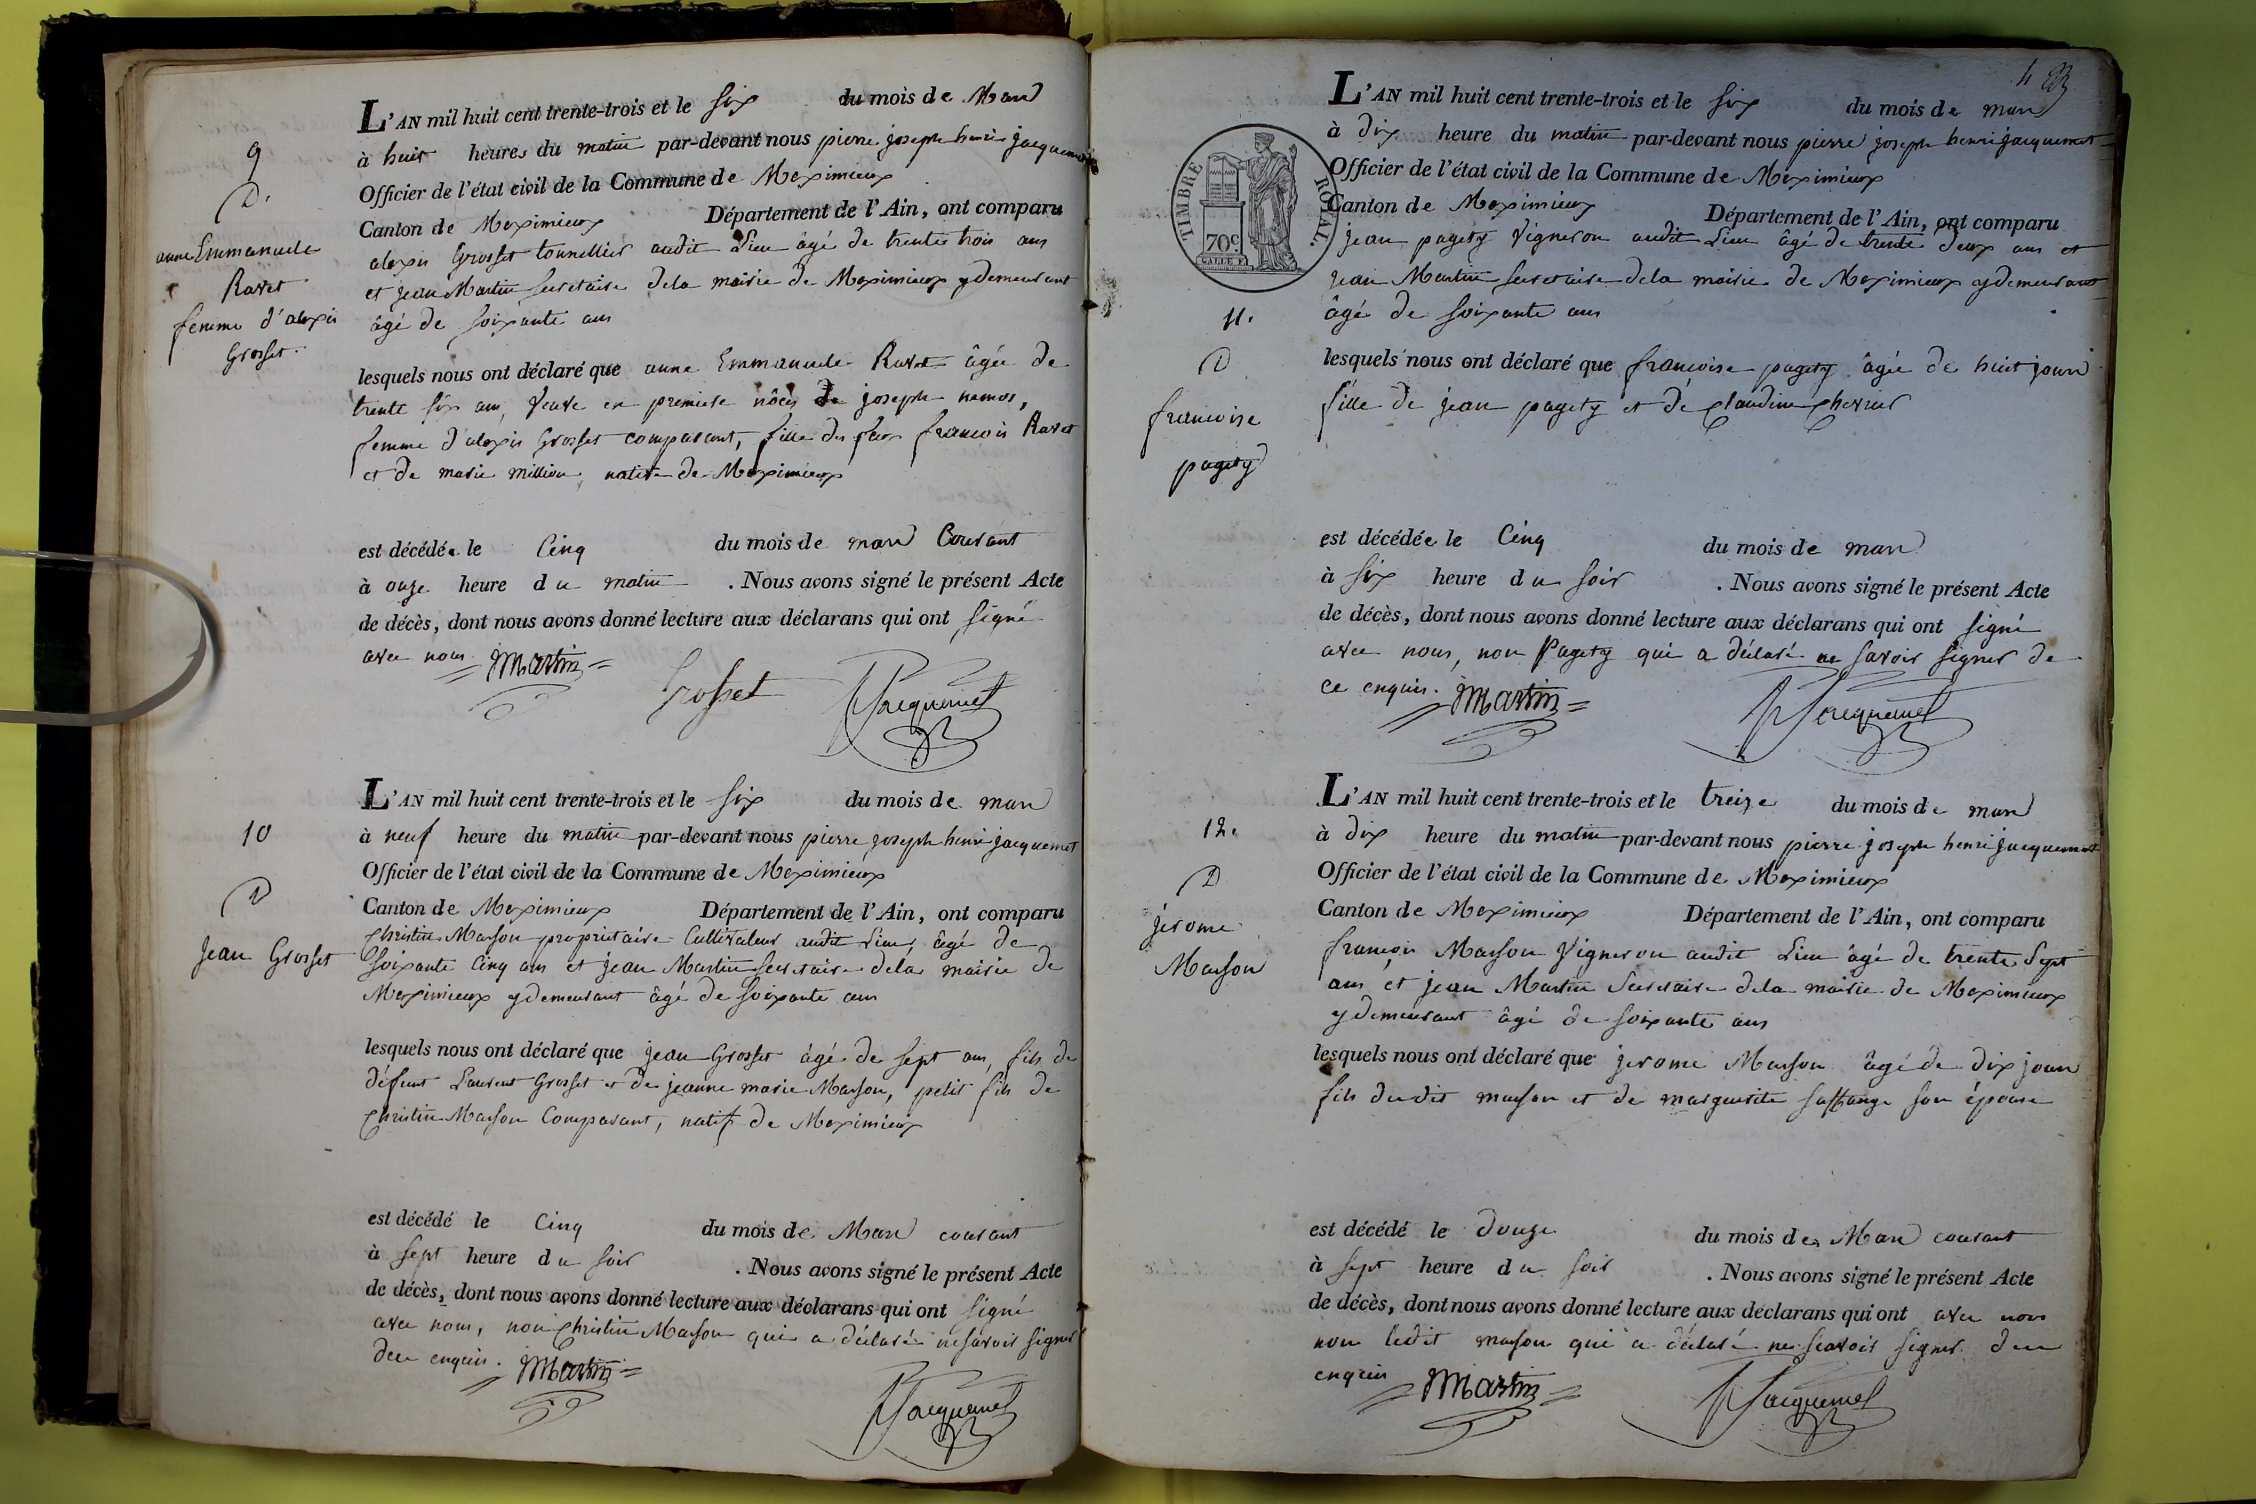 9
D.
anne Emmanuele
Ravet
femme d'alexis
Grosset.
L'AN mil huit cent trente-trois et le six du mois de Mars
à huit heures du matin par-devant nous pierre joseph henri jacquemet
Officier de l'état civil de la Commune de Meximieux
Canton de Meximieux Département de l'Ain, ont comparu
alexis Grosset tonnellier audit Lieu âgé de trente trois ans
et jean Martin secretaire dela mairie de Meximieux y demeurant
âgé de soixante ans
lesquels nous ont déclaré que anne Emmanuele Ravet âgée de
trente six ans, veuve en premiere nôces de joseph
femme d'alexis Grosset comparant, fille des feux francois Ravet
et de marie million, native de Meximieux
est décédée le Cinq du mois de mars Courant
à onze heure du matin . Nous avons signé le présent Acte
de décès, dont nous avons donné lecture aux déclarans qui ont signé
avec nous. Martin Grosset Jacquemet
10
D
Jean Grosset
L'AN mil huit cent trente-trois et le six du mois de mars
à neuf heure du matin par-devant nous pierre joseph henri jacquemet
Officier de l'état civil de la Commune de Meximieux
Canton de Meximieux Département de l'Ain, ont comparu
Christin Masson proprietaire Cultivateur audit Lieu, âgé de
Soixante Cinq ans et jean Martin secretaire dela mairie de
Meximieux y demeurant âgé de soixante ans
lesquels nous ont déclaré que jean Grosset âgé de sept ans, fils de
défunt Laurent Grosset et de jeanne marie Masson, petit fils de
Christin Masson Comparant, natif de Meximieux
est décédé le Cinq du mois de Mars courant
à sept heure du soir . Nous avons signé le présent Acte
de décès, dont nous avons donné lecture aux déclarans qui ont signé
avec nous, non Christin Masson qui a déclaré ne savoir signer
de ce enquis. Martin Jacquemet
4
TIMBRE ROYAL.
70c
11.
D
francoise
pagety
L'AN mil huit cent trente-trois et le six du mois de mars
à dix heure du matin par-devant nous pierre joseph henri jacquemet
Officier de l'état civil de la Commune de Meximieux
Canton de Meximieux Département de l'Ain, ont comparu
jean pagety Vigneron audit Lieu âgé de trente deux ans et
jean Martin secretaire dela mairie de Meximieux y demeurant
âgé de soixante ans
lesquels nous ont déclaré que francoise pagety âgée de huit jours
fille de jean pagety et de Claudine Chevrier
est décédée le Cinq du mois de mars
à six heure du soir . Nous avons signé le présent Acte
de décès, dont nous avons donné lecture aux déclarans qui ont signé
avec nous, non Pagety qui a déclaré ne savoir signer de
ce enquis. Martin Jacquemet
12.
D
jerome
Masson
L'AN mil huit cent trente-trois et le treize du mois de mars
à dix heure du matin par-devant nous pierre joseph henri jacquemet
Officier de l'état civil de la Commune de Meximieux
Canton de Meximieux Département de l'Ain, ont comparu
francois Masson Vigneron audit Lieu âgé de trente Sept
ans et jean Martin Secretaire dela mairie de Meximieux
y demeurant âgé de soixante ans
lesquels nous ont déclaré que jerome Masson âgé de dix jours
fils dudit masson et de marguerite son épouse
est décédé le douze du mois de Mars courant
à sept heure du soir . Nous avons signé le présent Acte
de décès, dont nous avons donné lecture aux déclarans qui ont avec nous
non ledit masson qui a déclaré ne scavoir signer de ce
enquis Martin Jacquemet